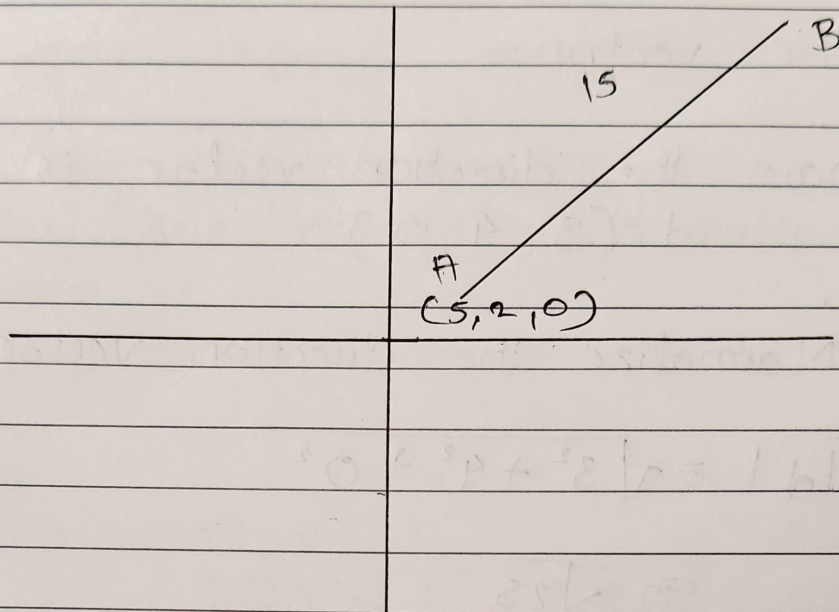 B
15
A
(5,2,0)